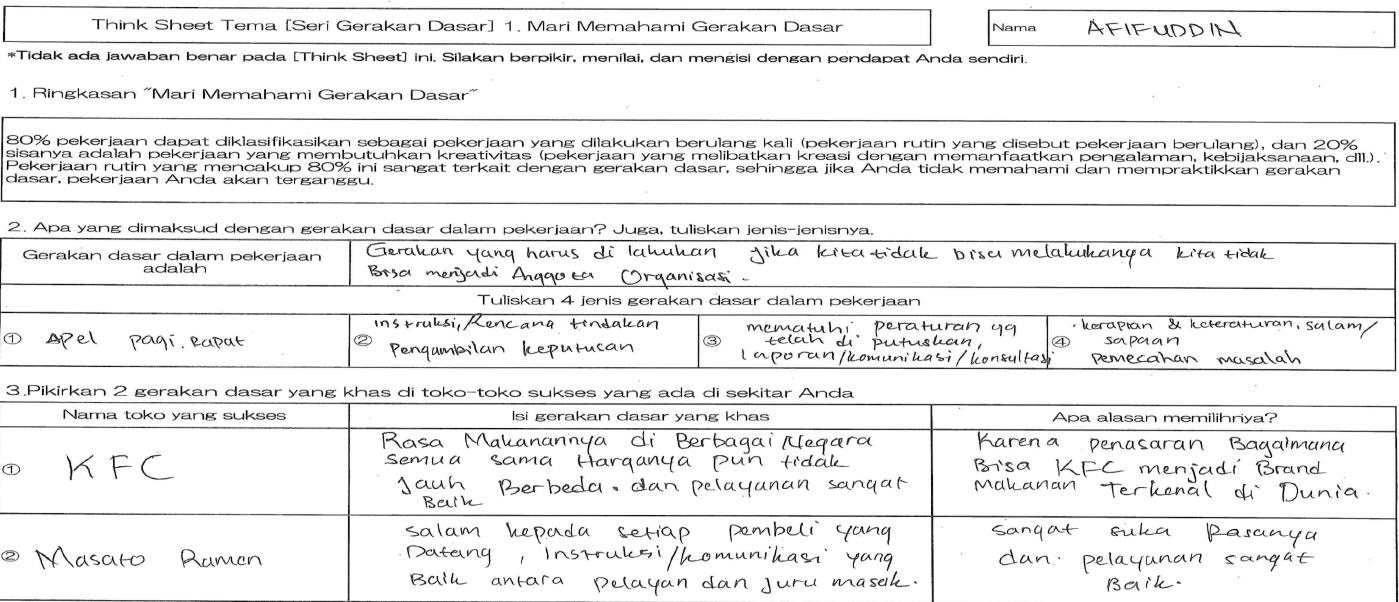 Think Sheet Tema [Seri Gerakan Dasar] 1. Mari Memahami Gerakan Dasar
Nama AFIFUDDIN
*Tidak ada jawaban benar pada [Think Sheet] ini. Silakan berpikir, menilai, dan mengisi dengan pendapat Anda sendiri.
1. Ringkasan "Mari Memahami Gerakan Dasar"
80% pekerjaan dapat diklasifikasikan sebagai pekerjaan yang dilakukan berulang kali (pekerjaan rutin yang disebut pekerjaan berulang), dan 20%
sisanya adalah pekerjaan yang membutuhkan kreativitas (pekerjaan yang melibatkan kreasi dengan memanfaatkan pengalaman, kebijaksanaan, dll.).
Pekerjaan rutin yang mencakup 80% ini sangat terkait dengan gerakan dasar, sehingga jika Anda tidak memahami dan mempraktikkan gerakan
dasar, pekerjaan Anda akan terganggu.
2. Apa yang dimaksud dengan gerakan dasar dalam pekerjaan? Juga, tuliskan jenis-jenisnya.
Gerakan dasar dalam pekerjaan
adalah
Gerakan yang harus di lakukan jika kita tidak bisa melakukanya kita tidak
Bisa menjadi Anggota Organisasi.
Tuliskan 4 jenis gerakan dasar dalam pekerjaan
① Apel pagi. Rapat
② instruksi/Rencana tindakan
Pengambilan keputusan
③ mematuhi peraturan yg
telah di putuskan,
laporan/komunikasi/konsultasi
④ . kerapian & keteraturan, salam/
sapaan
pemecahan masalah
3.Pikirkan 2 gerakan dasar yang khas di toko-toko sukses yang ada di sekitar Anda
Nama toko yang sukses
Isi gerakan dasar yang khas
Apa alasan memilihnya?
① KFC
Rasa Makanannya di Berbagai Negara
semua sama Harganya pun tidak
Jauh Berbeda. dan pelayanan sangat
Baik
Karena penasaran Bagaimana
Bisa KFC menjadi Brand
Makanan Terkenal di Dunia.
② Masato Ramen
salam kepada setiap pembeli yang
Datang, Instruksi/komunikasi yang
Baik antara pelayan dan juru masak.
sangat suka Rasanya
dan. pelayanan sangat
Baik.